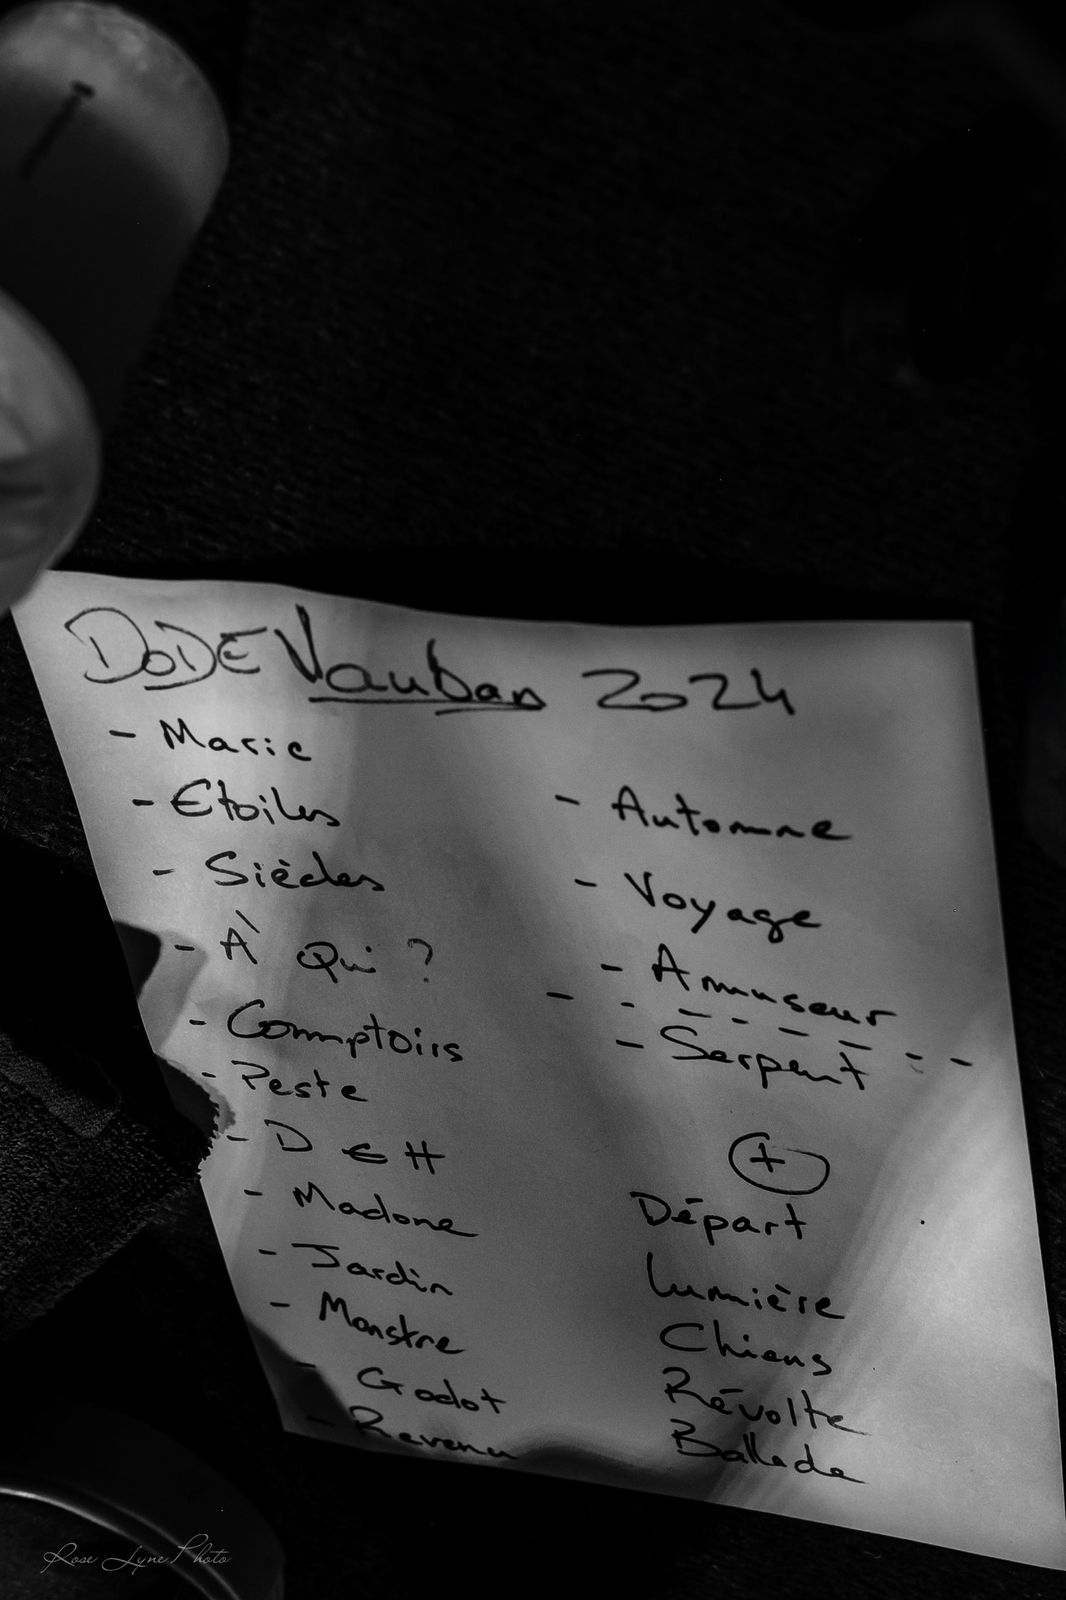 DODE Vauban 2024
- Marie
- Etoiles
- Siècles
- À Qui ?
- Comptoirs
- Peste
- D E H
- Madone
- Jardin
- Monstre
- Godot
- Revenu
- Automne
- Voyage
- Amuseur
- Serpent
+
Départ
Lumière
Chiens
Révolte
Ballade
Rose Lyne Photo